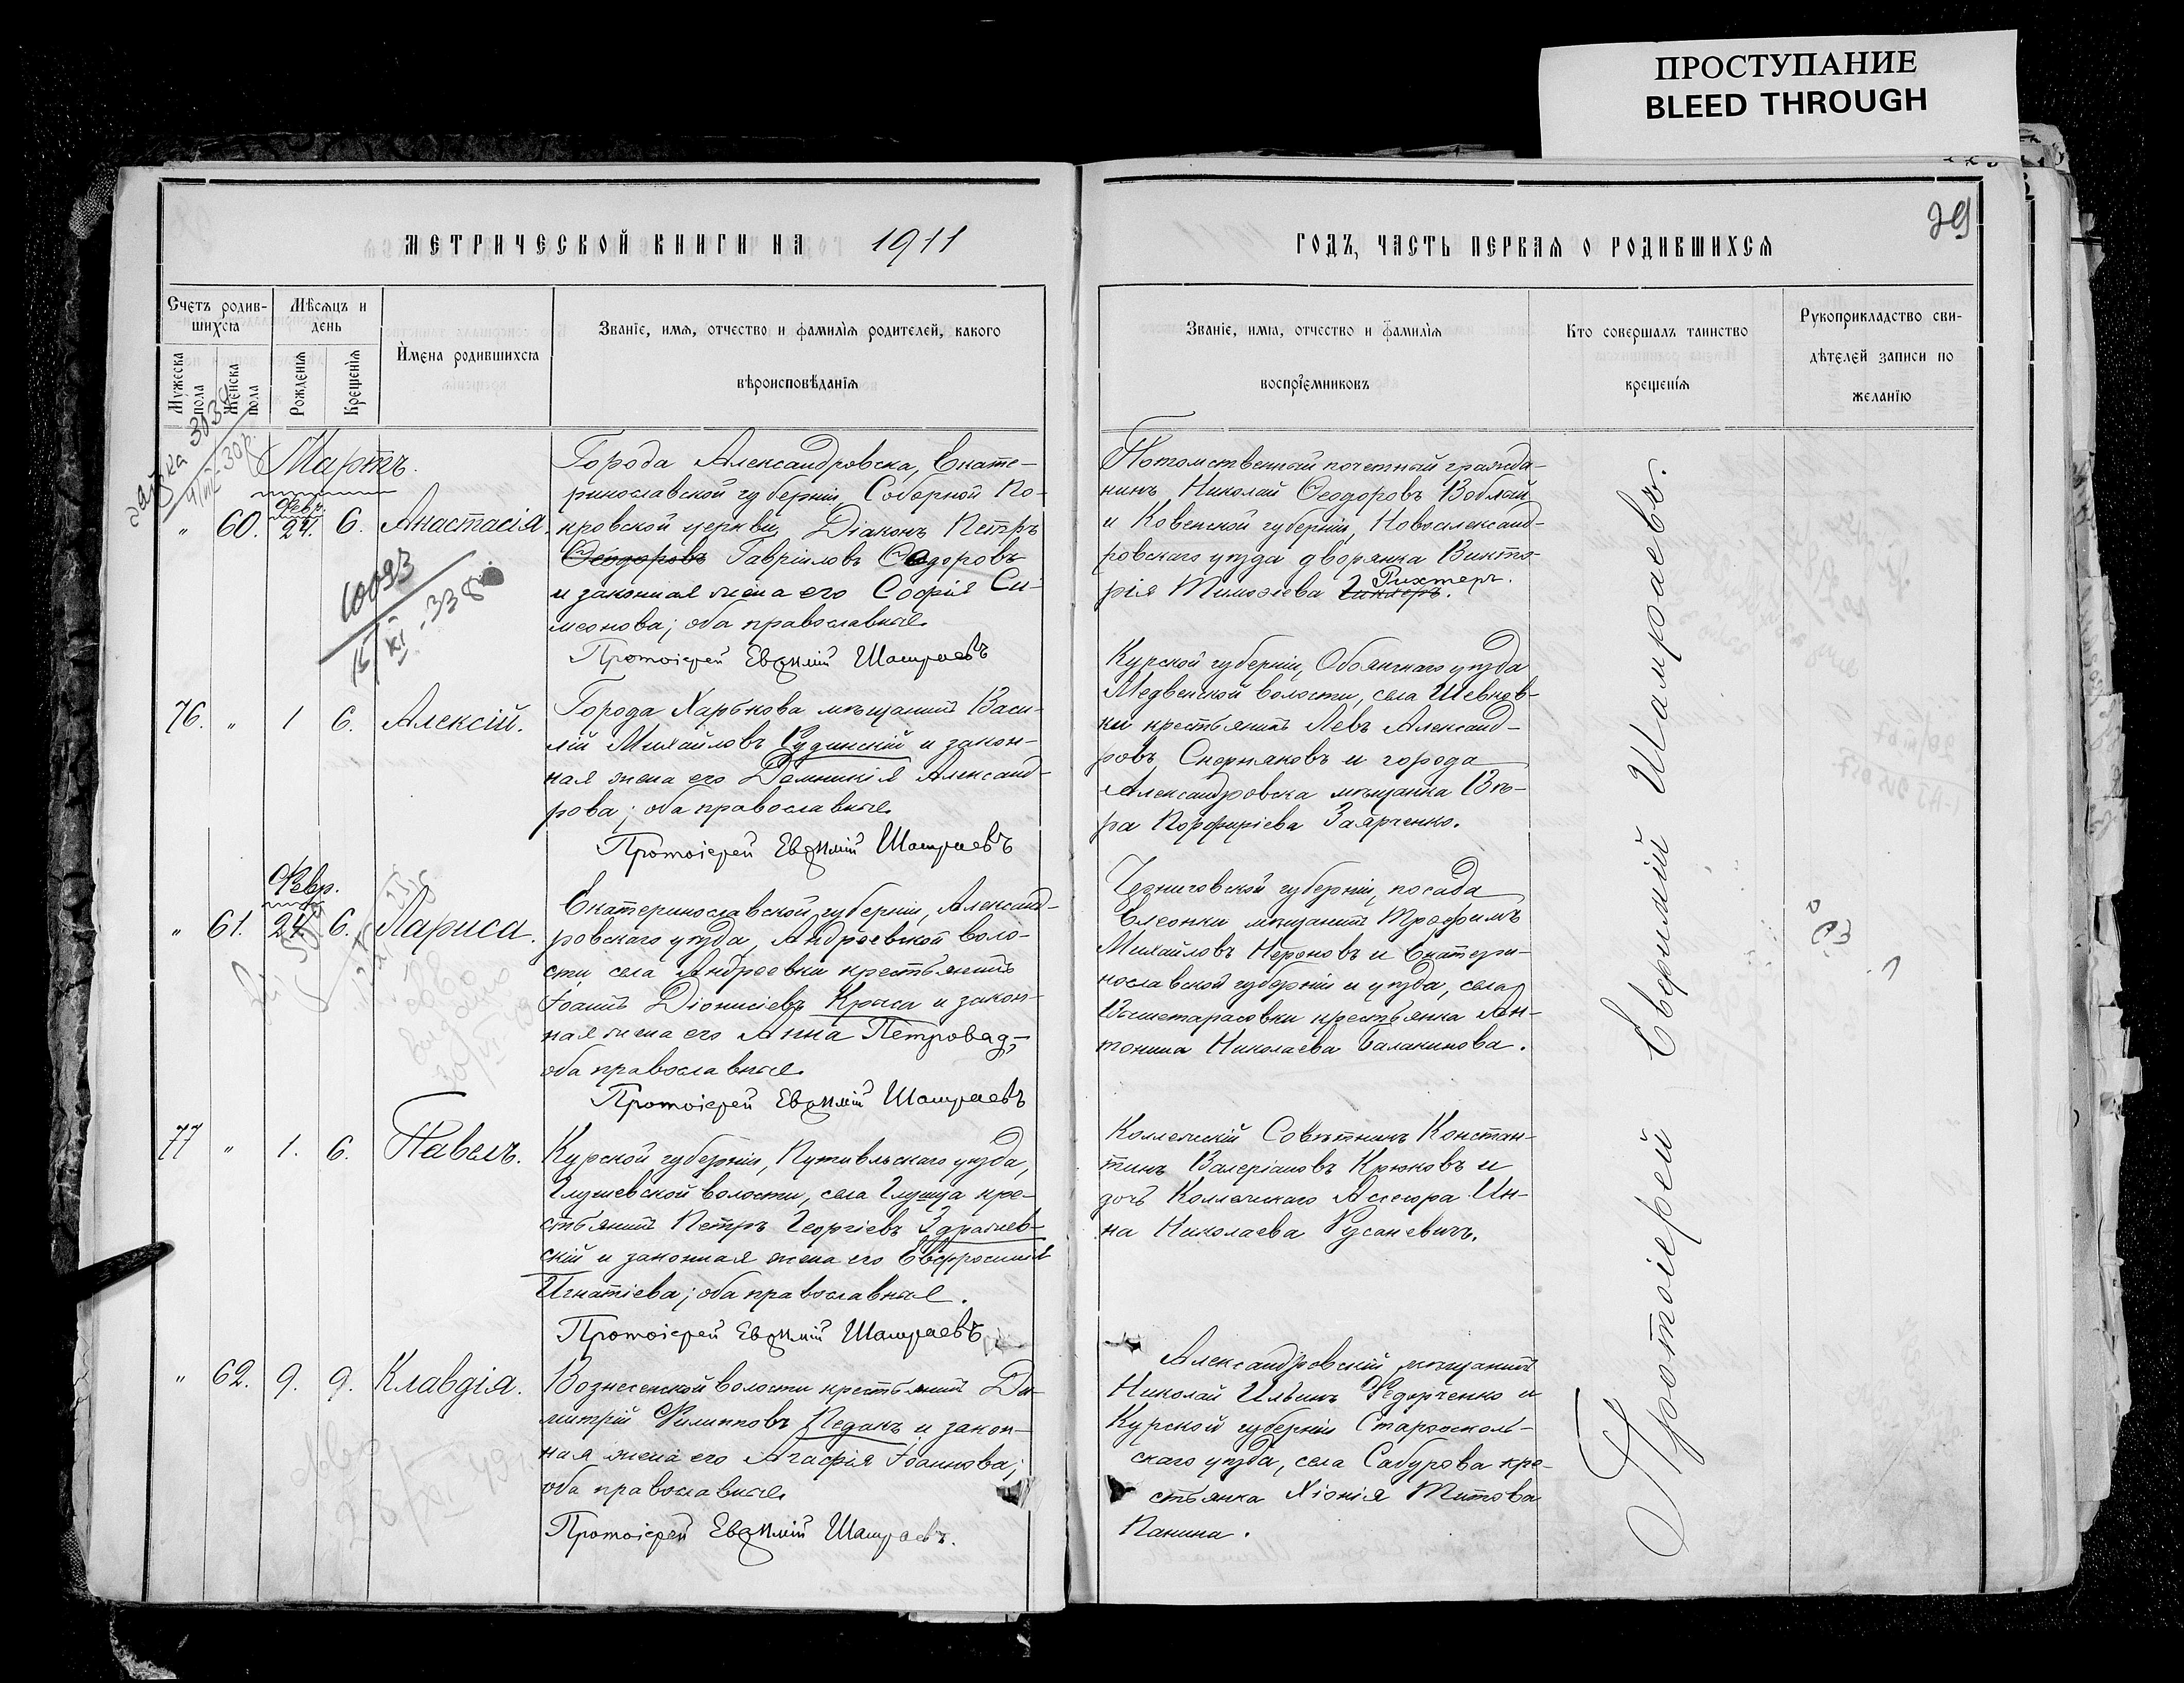 ПРОСТУПАНИЕ
BLEED THROUGH
МЕТРИЧЕСКОЙ КНИГИ НА 1911
ГОДЪ, ЧАСТЬ ПЕРВАЯ О РОДИВШИХСЯ
29
Счетъ родив-
шихся
Мужеска пола
Женска пола
Мѣсяцъ и
день
Рожденія
Крещенія
Имена родившихся
Званіе, имя, отчество и фамилія родителей, какого
вѣроисповѣданія
Званіе, имя, отчество и фамилія
воспріемниковъ
Кто совершалъ таинство
крещенія
Рукоприкладство сви-
дѣтелей записи по
желанію
Мартъ.
" 60. Февр. 24. 6. Анастасія.
10093
Города Александровска, Екате-
ринославской губерніи, Соборной По-
кровской церкви, Діаконъ Петръ
Ѳеодоровъ Гавріиловъ Ѳеодоровъ
и законная жена его Софія Си-
меонова; оба православные.
Протоіерей Евѳимій Шамраевъ
Потомственный почетный гражда-
нинъ Николай Ѳеодоровъ Воблый
и Ковенской губерніи, Новоалександ-
ровскаго уѣзда дворянка Викто-
рія Тимоѳіева Рихтеръ.
76. " 1 6. Алексій.
Города Харькова мѣщанинъ Васи-
лій Михайловъ Рудинскій и закон-
ная жена его Домникія Александ-
рова; оба православные.
Протоіерей Евѳимій Шамраевъ
Курской губерніи, Обоянскаго уѣзда
Медвенской волости, села Шевнов-
ки крестьянинъ Левъ Александ-
ровъ Сперняковъ и города
Александровска мѣщанка Вѣ-
ра Порфиріева Заярченко.
" 61. Февр. 24. 6. Лариса.
Екатеринославской губерніи, Александ-
ровскаго уѣзда, Андреевской воло-
сти, села Андреевки крестьянинъ
Іоаннъ Діонисіевъ Краса и закон-
ная жена его Анна Петрова;
оба православные.
Протоіерей Евѳимій Шамраевъ
Черниговской губерніи, посада
Елеонки мѣщанинъ Трофимъ
Михайловъ Нероновъ и Екатери-
нославской губерніи и уѣзда, села
Вышетарасовки крестьянка Ан-
тонина Николаева Балакинова.
77 " 1. 6. Павелъ.
Курской губерніи, Путивльскаго уѣзда,
Глушевской волости, села Глушца кре-
стьянинъ Петръ Георгіевъ Здраглев-
скій и законная жена его Евфросинія
Игнатіева; оба православные.
Протоіерей Евѳимій Шамраевъ
Коллежскій Совѣтникъ Констан-
тинъ Валеріановъ Крюковъ и
дочь Коллежскаго Ассесора Ин-
на Николаева Русаневичъ.
" 62. 9. 9. Клавдія.
Вознесенской волости крестьянинъ Ди-
митрій Филипповъ Педакъ и закон-
ная жена его Агафія Іоаннова;
оба православные.
Протоіерей Евѳимій Шамраевъ.
Александровскій мѣщанинъ
Николай Ильинъ Федорченко и
Курской губерніи Старооскол-
скаго уѣзда, села Сабурова кре-
стьянка Хіонія Титова
Панина.
Протоіерей Евѳимій Шамраевъ.